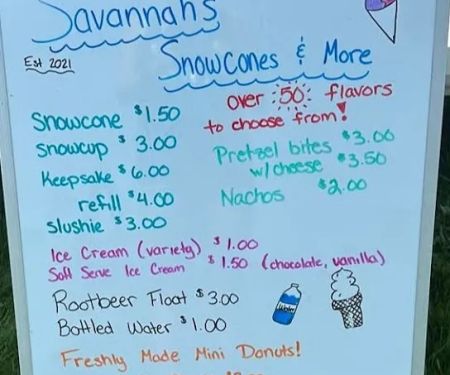 Savannahs
Est 2021
Snowcones & More
Over 50 flavors
to choose from!
Snowcone $1.50
Snowcup $3.00
Keepsake $6.00
refill $4.00
Slushie $3.00
Pretzel bites $3.00
w/cheese $3.50
Nachos $2.00
Ice Cream (variety) $1.00
Soft Serve Ice Cream $1.50 (chocolate, vanilla)
Rootbeer Float $3.00
Bottled Water $1.00
Water
Freshly Made Mini Donuts!